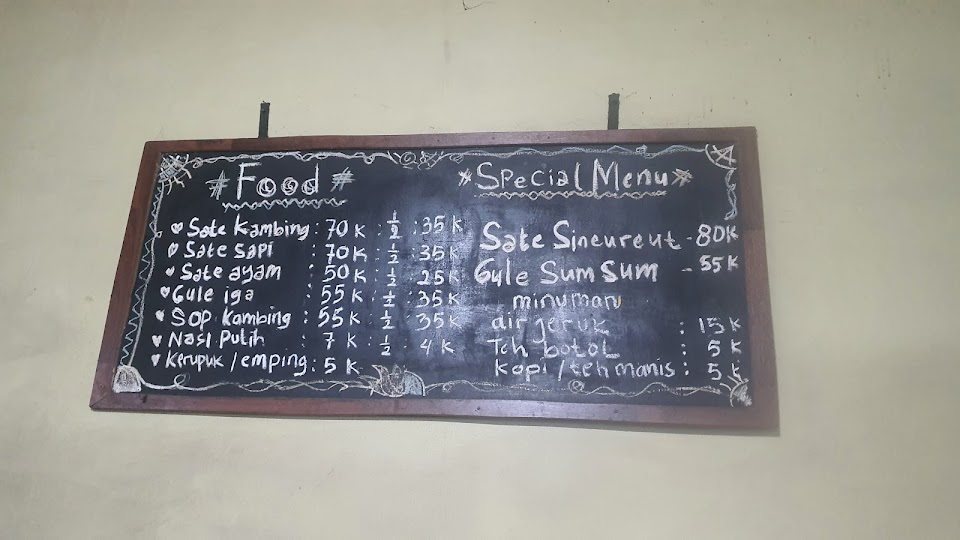 # Food #
Sate Kambing : 70 K : 1/2 : 35 K
Sate Sapi : 70 K : 1/2 : 35 K
Sate ayam : 50 K : 1/2 : 25 K
Gule iga : 55 K : 1/2 : 35 K
SOP Kambing : 55 K : 1/2 : 35 K
Nasi Putih : 7 K : 1/2 : 4 K
Kerupuk / emping : 5 K
*Special Menu*
Sate Sineureut - 80K
Gule Sum Sum - 55K
minuman
air jeruk : 15 K
Teh botol : 5 K
kopi / teh manis : 5 K